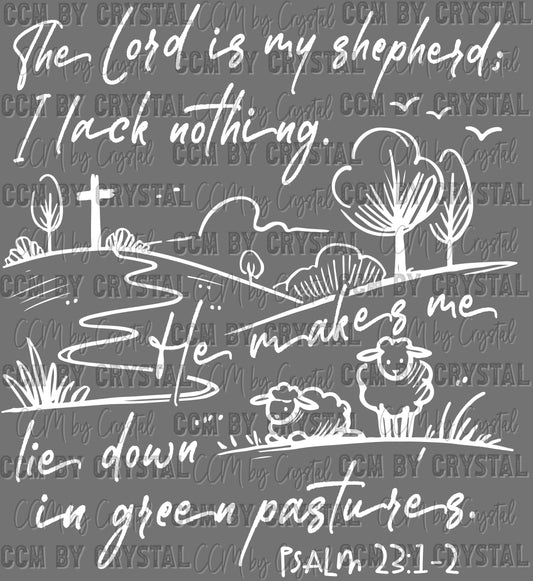 The Lord is my shepherd;
I lack nothing.
He makes me
lie down
in green pastures.
PSALM 23:1-2
CCM BY CRYSTAL
CCM by Crystal